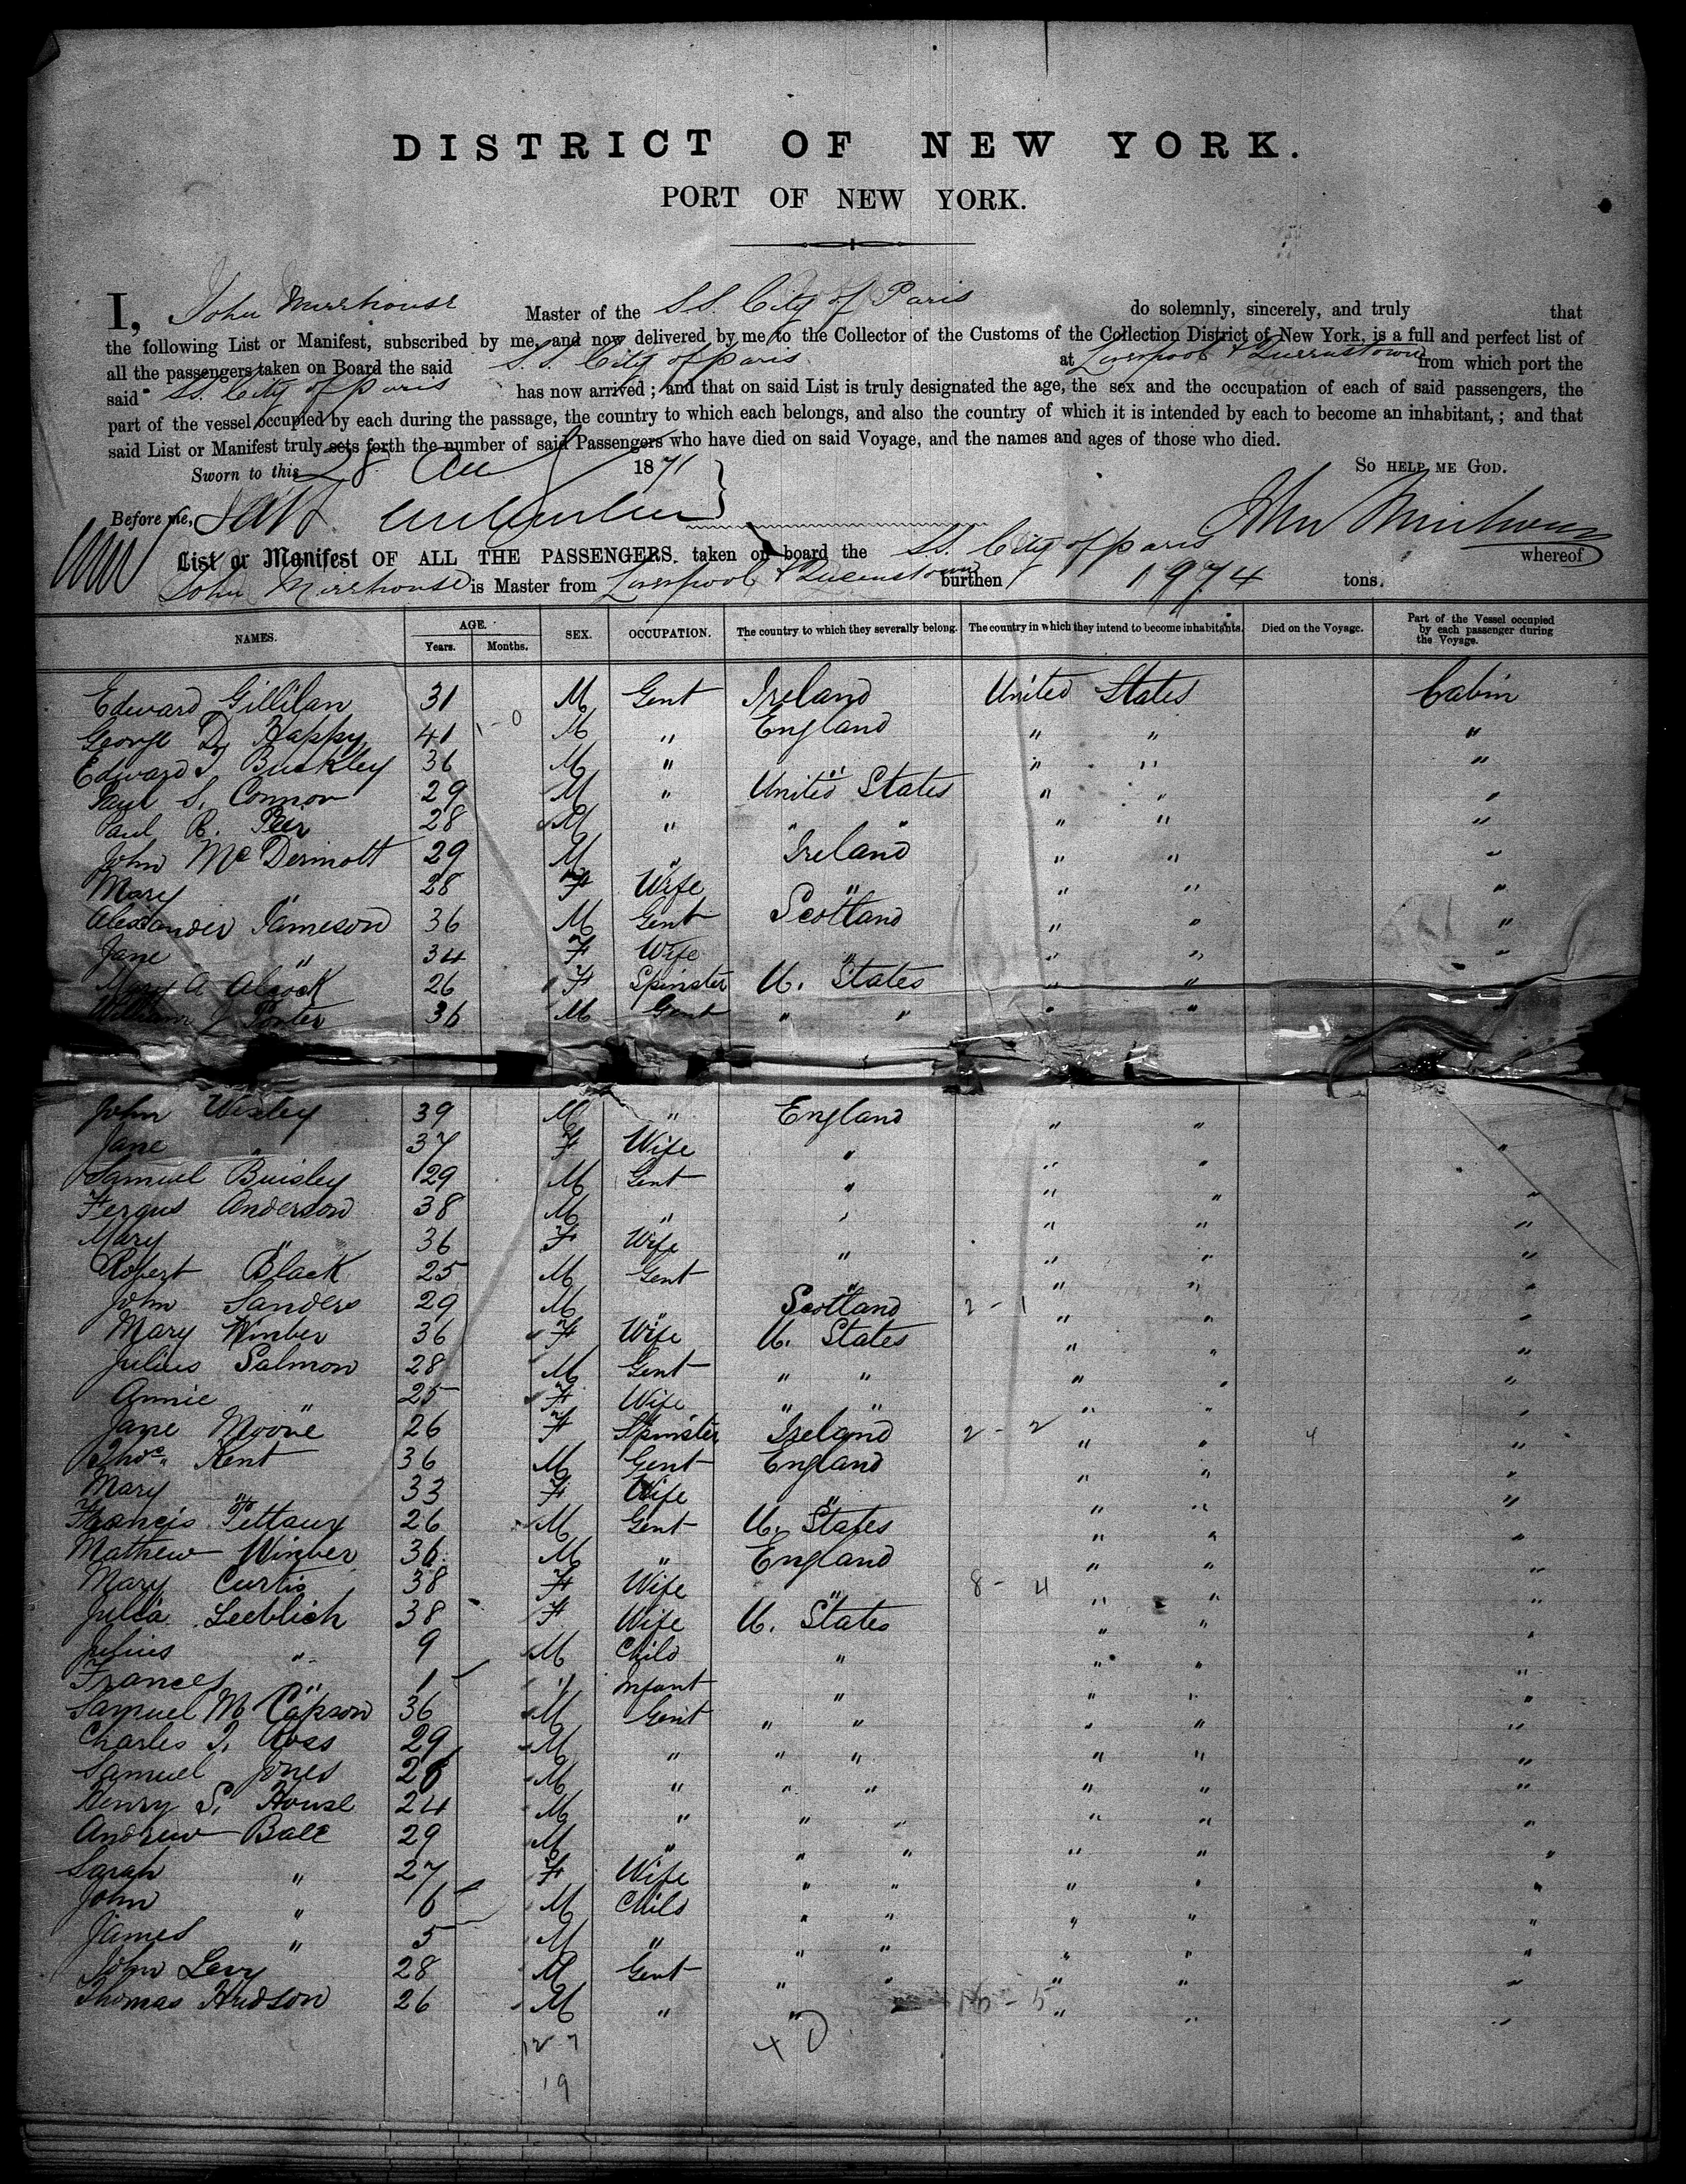 DISTRICT OF NEW YORK.
PORT OF NEW YORK.
I, John Mirehouse Master of the S.S. City of Paris do solemnly, sincerely, and truly that
the following List or Manifest, subscribed by me, and now delivered by me to the Collector of the Customs of the Collection District of New York, is a full and perfect list of
all the passengers taken on Board the said S.S. City of Paris at Liverpool & Queenstown from which port the
said SS. City of Paris has now arrived; and that on said List is truly designated the age, the sex and the occupation of each of said passengers, the
part of the vessel occupied by each during the passage, the country to which each belongs, and also the country of which it is intended by each to become an inhabitant,; and that
said List or Manifest truly sets forth the number of said Passengers who have died on said Voyage, and the names and ages of those who died.
Sworn to this 28 1871 SO HELP ME GOD.
Before me, John Mirehouse
List or Manifest OF ALL THE PASSENGERS taken on board the SS. City of Paris whereof
John Mirehouse is Master from Liverpool & Queenstown burthen 1974 tons.
NAMES. AGE. Years. Months. SEX. OCCUPATION. The country to which they severally belong. The country in which they intend to become inhabitants. Died on the Voyage. Part of the Vessel occupied by each passenger during the Voyage.
Edward Gillilan 31 M Gent Ireland United States Cabin
George D. Happy 41 - 0 M " England " " "
Edward J. Buckley 36 M " " " " "
Paul S. Connor 29 M " United States " " "
Paul R. Peer 28 M " " " " " "
John McDermott 29 M " Ireland " " "
Mary " 28 F Wife " " " "
Alexander Jameson 36 M Gent Scotland " " "
Jane " 34 F Wife " " "
Mary A Alcock 26 F Spinster U. States " "
William J Porter 36 M Gent " " " "
John Wesley 39 M " England " "
Jane " 37 F Wife " " " "
Samuel Buisley 29 M Gent " " " "
Fergus Anderson 38 M " " " " "
Mary " 36 F Wife " " " "
Robert Black 25 M Gent " " " "
John Sanders 29 M " Scotland 2 - 1 " " "
Mary Winber 36 F Wife U. States " " "
Julius Salmon 28 M Gent " " " " "
Annie " 25 F Wife " " " " "
Jane Moore 26 F Spinster Ireland 2 - 2 " " 4 "
Thos. Kent 36 M Gent England " " "
Mary " 33 F Wife " " " "
Francis Pettaux 26 M Gent U. States " " "
Mathew Winber 36 M " England " " "
Mary Curtis 38 F Wife " 8 - 4 " " "
Julia Leeblich 38 F Wife U. States " " "
Julius " 9 M Child " " " "
Frances " 1 Infant " " " "
Samuel M Capson 36 M Gent " " " " "
Charles J. Ross 29 M " " " " " "
Samuel Jones 28 M " " " " " "
Henry S. House 24 M " " " " " "
Andrew Ball 29 M " " " " " "
Sarah " 27 F Wife " " " " "
John " 6 M Child " " " " "
James " 5 M " " " " " "
John Levy 28 M Gent " " " " "
Thomas Hudson 26 M " " 16 - 5 " " "
12 7 4 D
19